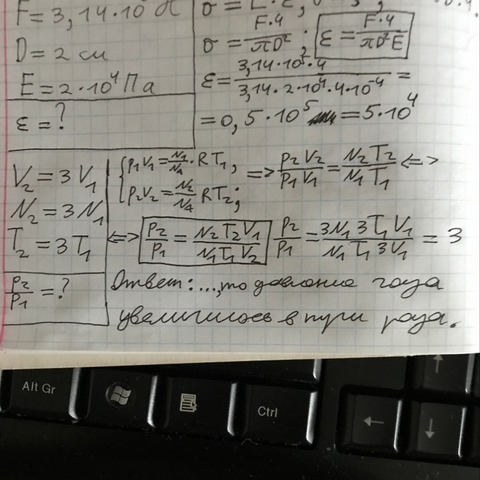 F = 3,14·10⁵ Н
D = 2 см
E = 2·10⁴ Па
ε = ?
σ = F·4/πD² ; ε = F·4/πD²E
ε = 3,14·10⁵·4/3,14·2·10⁴·4·10⁻⁴ =
= 0,5·10⁵ = 5·10⁴
V₂ = 3V₁
N₂ = 3N₁
T₂ = 3T₁
P₂/P₁ = ?
P₁V₁ = /Nₐ · RT₁,
P₂V₂ = N₂/Nₐ RT₂;
=> P₂V₂/P₁V₁ = N₂T₂/N₁T₁ <=>
<=> P₂/P₁ = N₂T₂V₁/N₁T₁V₂
P₂/P₁ = 3N₁3T₁V₁/N₁T₁3V₁ = 3
Ответ: ..., то давление газа
увеличилось в три раза.
Alt Gr
Ctrl